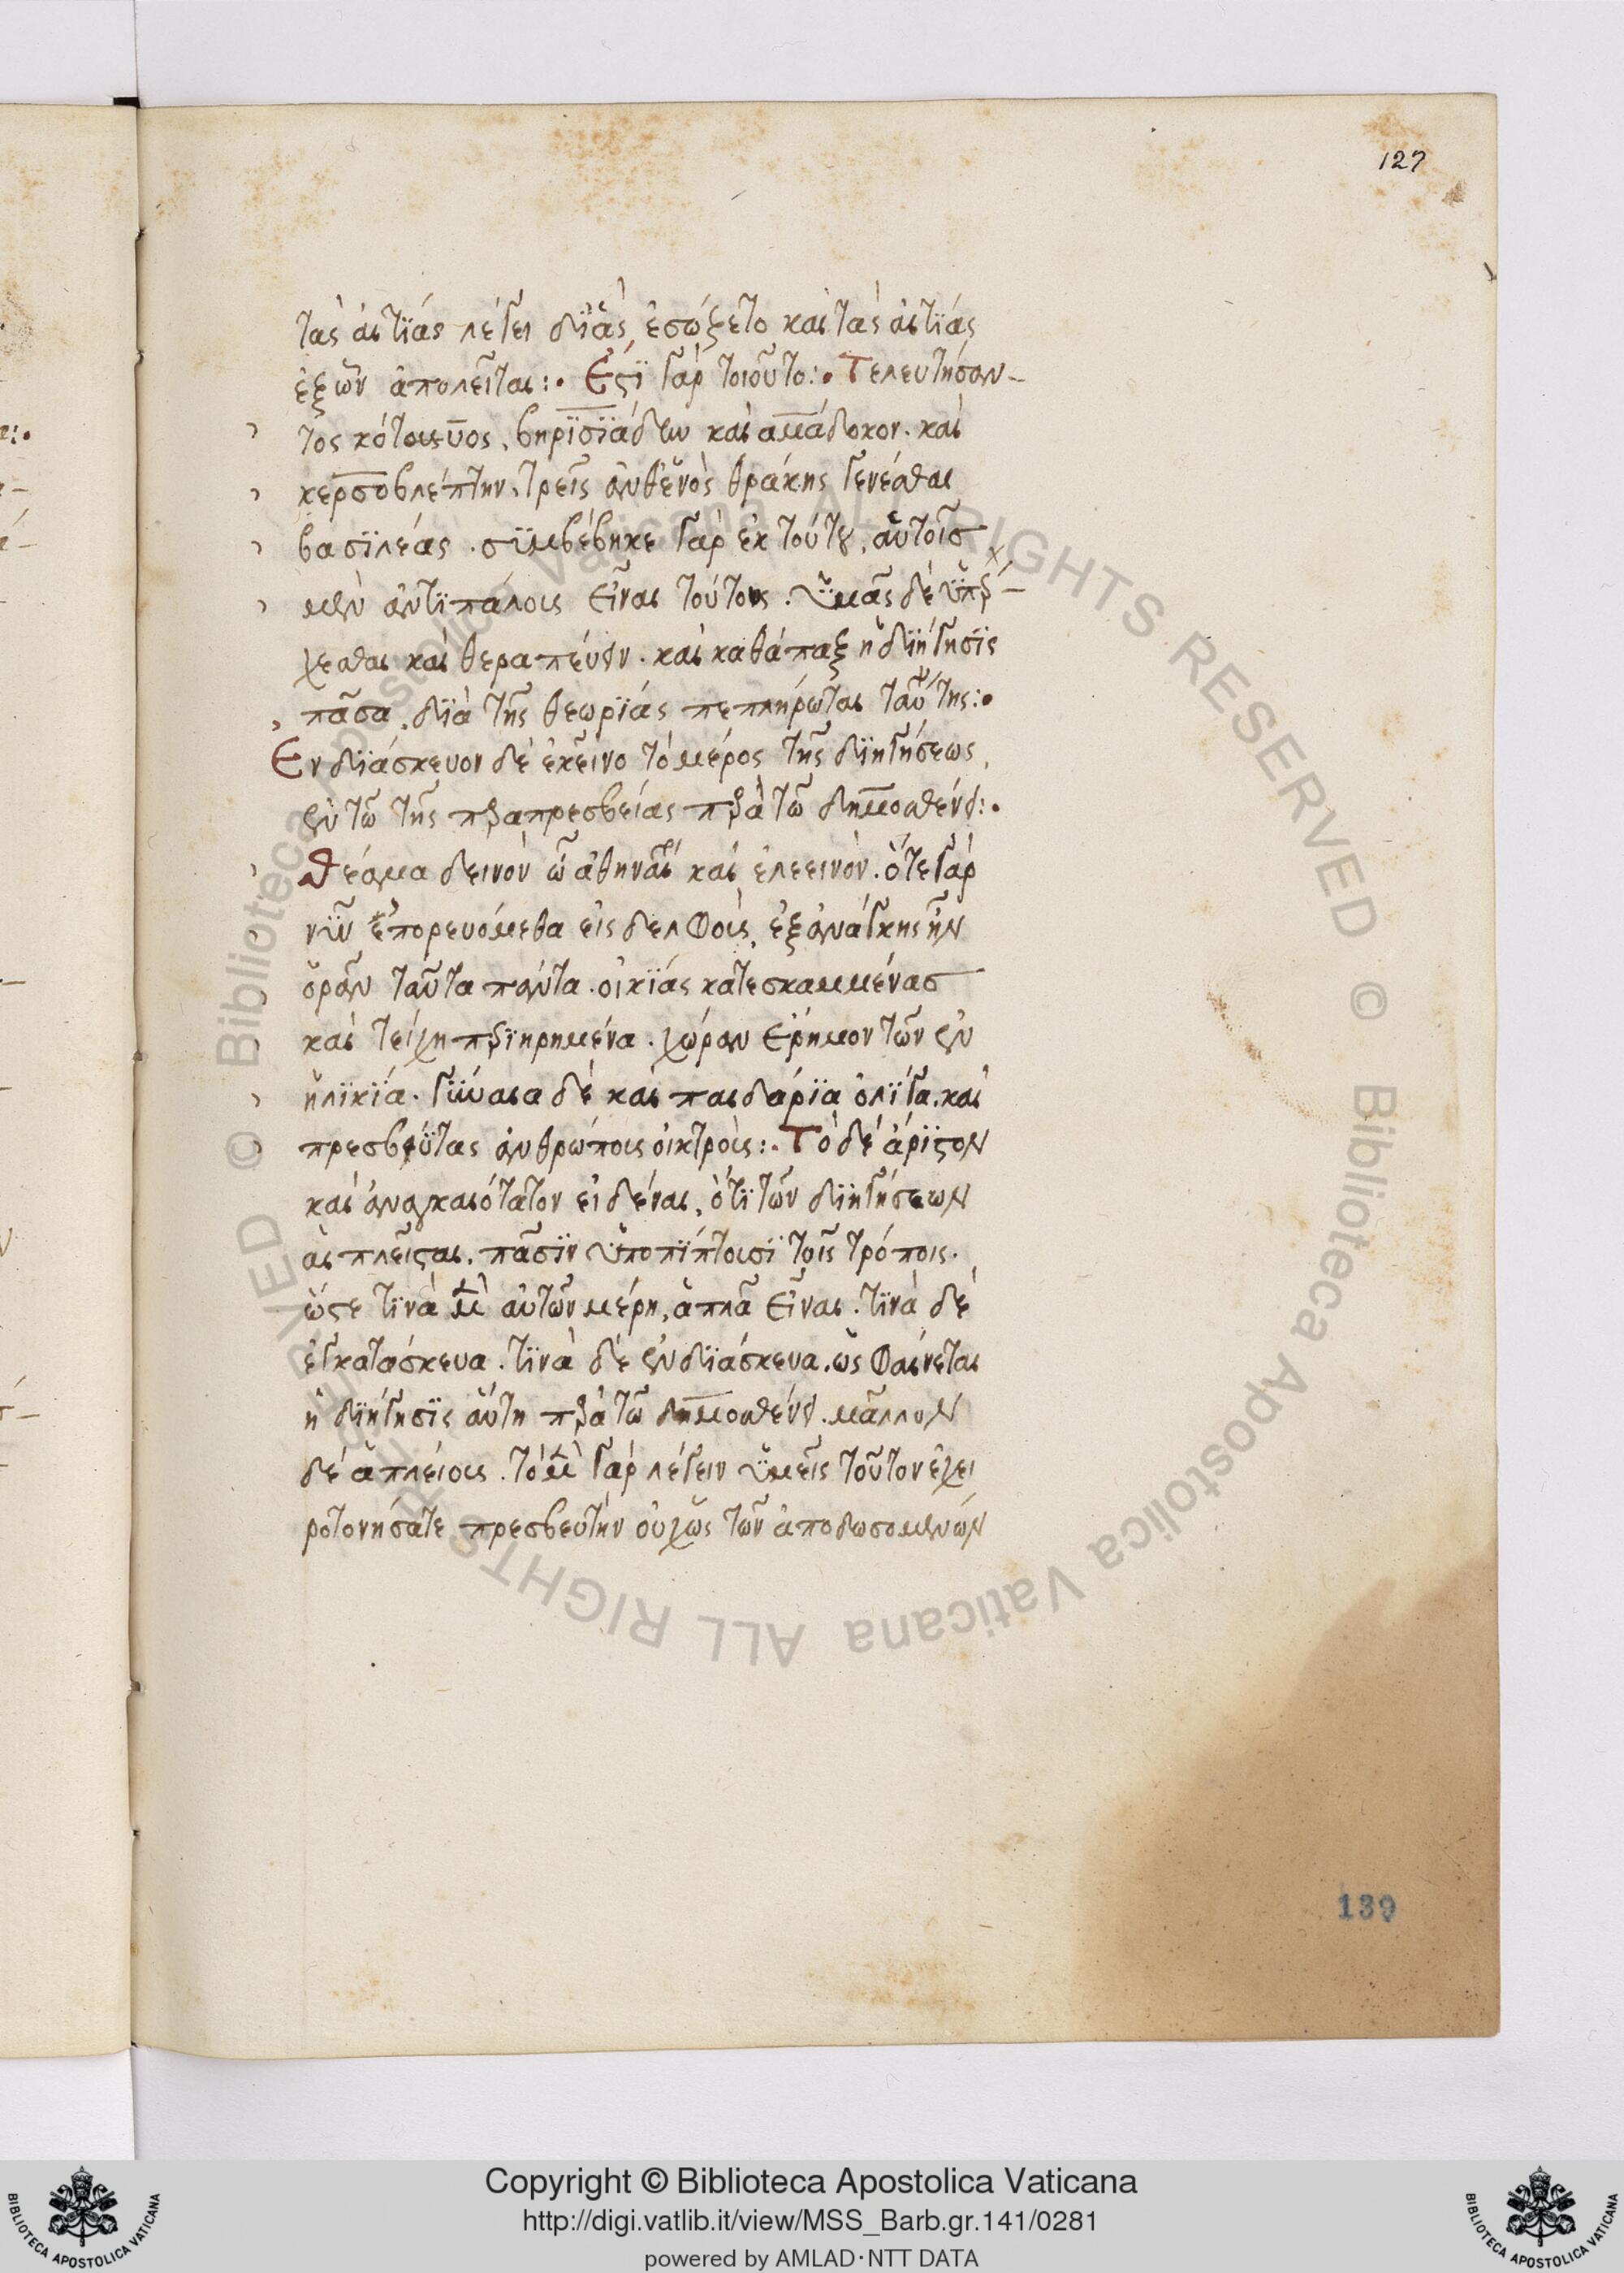 127
τὰς αἰτΐας λέγει δϊ ἃς, ἐσώζετο καὶ τὰς αἰτΐας
ἐξ ὧν ἀπολεῖται:· Ἐστΐ γὰρ τοιοῦτο:· Τελευτήσαν-
τος κότουϋος, βηρϊσϊάδην καὶ αμάδοκον. καὶ
κερσοβλέπτην, τρεῖς ἀνθενὸς θράκης γενέσθαι
βασϊλέας. συμβέβηκε γὰρ ἐκ τούτου, αὐτοῖσ
μὲν ἀντϊπάλους εἶναι τούτους. ὑμᾶς δὲ ὑπέρ-
χεσθαι καὶ θεραπεύειν. καὶ καθάπαξ ἡ δϊήγησϊς
πᾶσα, δϊὰ τῆς θεωρΐας πεπλήρωται ταύτης:·
Ενδϊάσκευον δὲ ἐκεῖνο τὸ μέρος τῆς δϊηγήσεως,
ἐν τῶ τῆς παραπρεσβείας παρὰ τῶ δημοσθένει:·
Θέαμα δεινὸν ὦ ἀθηναῖοι καὶ ἐλεεινὸν. ὅτε γὰρ
νῦν ἐπορευόμεθα εἰς δελφοὺς, ἐξ ἀνάγκης ἦν
ὁρᾶν ταῦτα πάντα. οἰκΐας κατεσκαμμένασ
καὶ τείχη περϊηρημένα. χώραν ἔρήμον τῶν ἐν
ἡλϊκΐα. γύναια δὲ καὶ παιδάρϊα ὀλΐγα. καὶ
πρεσβεύτας ἀνθρώπους οἰκτροὺς:· Τὸ δὲ ἄρϊστον
καὶ ἀναγκαιότατον εἰδέναι, ὅτϊ τῶν δϊηγήσεων
αἱ πλεῖσται. πᾶσϊν ὑποπΐπτουσϊ τοῖς τρόποις.
ὥστε τϊνὰ μὲν αὐτῶν μέρη, ἁπλᾶ εἶναι. τϊνὰ δὲ
ἐγκατάσκευα. τϊνὰ δὲ ἐνδϊάσκευα. ὡς φαίνεται
ἡ δϊήγησϊς αὕτη παρὰ τῶ δημοσθένει. μᾶλλον
δὲ αἱ πλείους. τὸ μὲν γὰρ λέγειν ὑμεῖς τοῦτον ἐχει
ροτονήσατε πρεσβευτὴν οὐχ ὡς τῶν ἀποδωσομενών
139
Copyright © Biblioteca Apostolica Vaticana
http://digi.vatlib.it/view/MSS_Barb.gr.141/0281
powered by AMLAD·NTT DATA